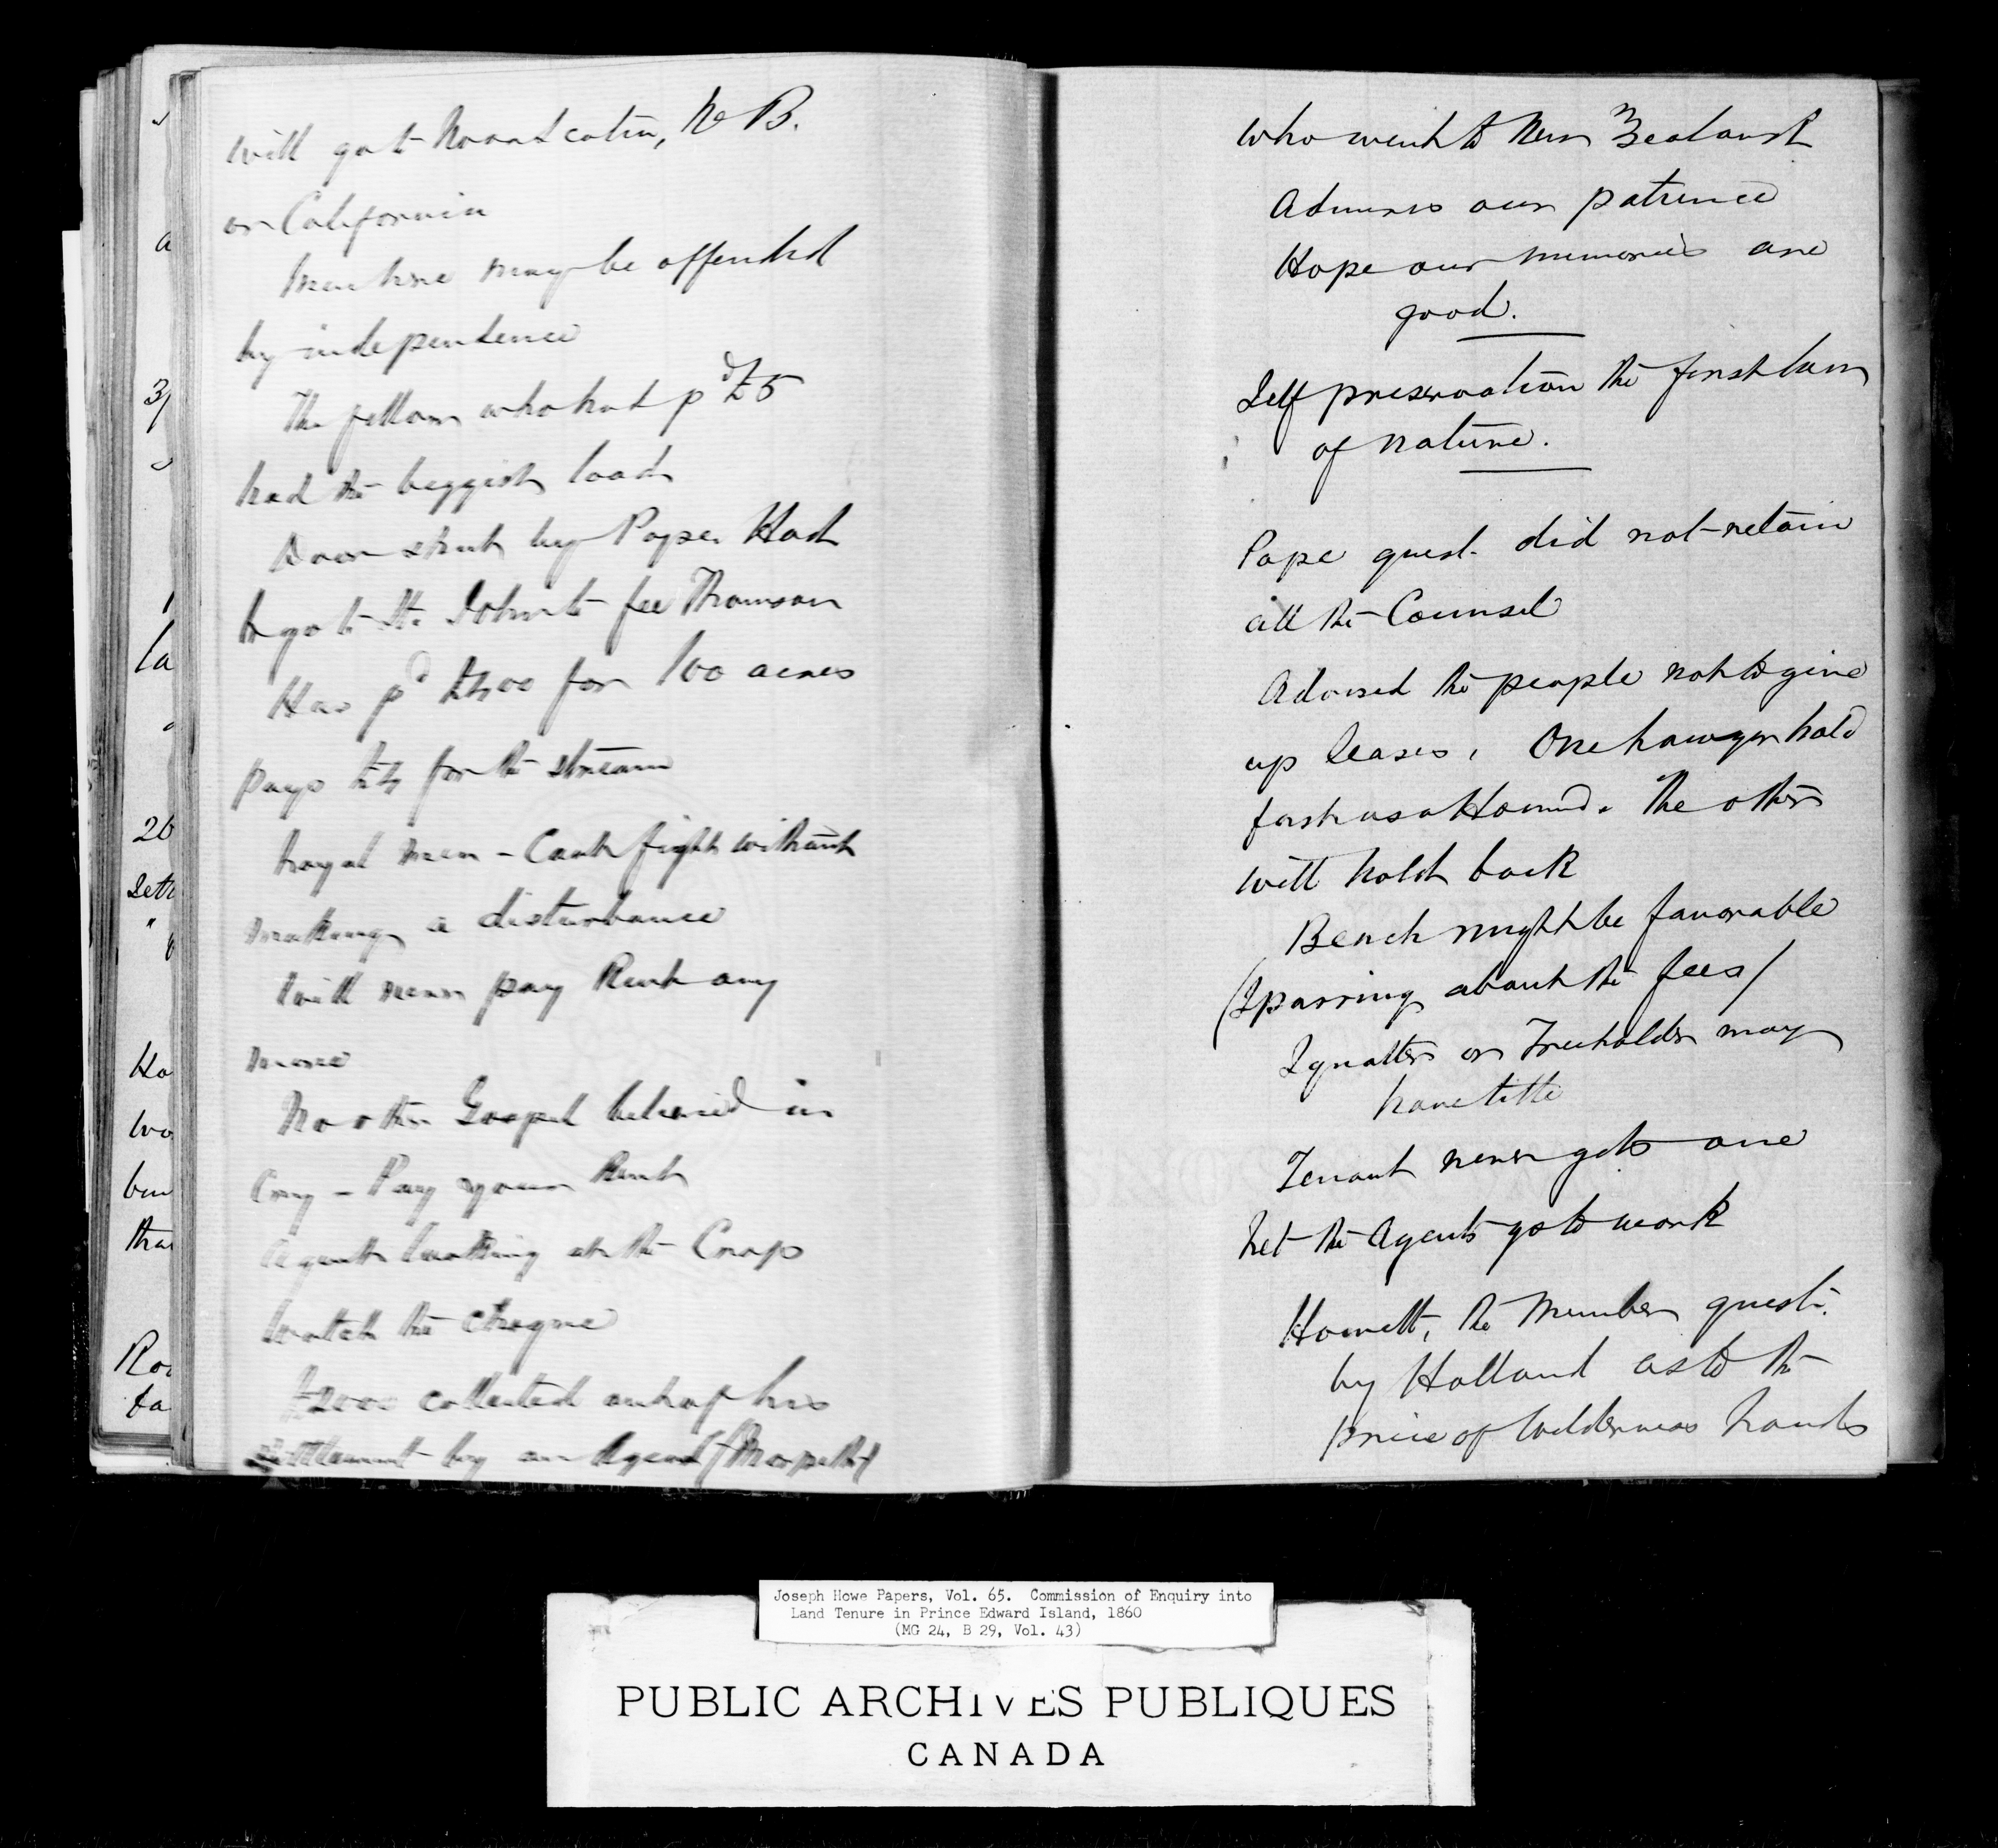 will go to Nova Scotia, N B.
or California
Men here may be offended
by independence
The fellow who had pd £5
had the biggest load
down by Pope. Had
to go to St. John to fee Thomson
Has pd £400 for 100 acres
pays for the stream
Loyal men - Cant fight without
making a disturbance
Will never pay Rent any
more
No other Gospel believed in
Cry - Pay your Rent
Agents looking at the Crop
watch the
£2000 collected out of his
settlement by an Agent (Morpeth)
3/
la
26
Ho
wo
that
who went to New Zealand
Admires our patience
Hope our memories are
good.
Self preservation the first law
of nature.
Pope quest. did not retain
all the Counsel
Advised the people not to give
up leases. One Lawyer hold
fast as a Hound. The others
will hold back
Bench might be favorable
(Sparring about the fees)
Squatters or Freeholder may
have title
Tenant never gets one
Let the Agents go to work
Howatt, the Member quest.
by Holland as to the
price of Wilderness Lands
Joseph Howe Papers, Vol. 65. Commission of Enquiry into
Land Tenure in Prince Edward Island, 1860
(MG 24, B 29, Vol. 43)
PUBLIC ARCHIVES PUBLIQUES
CANADA